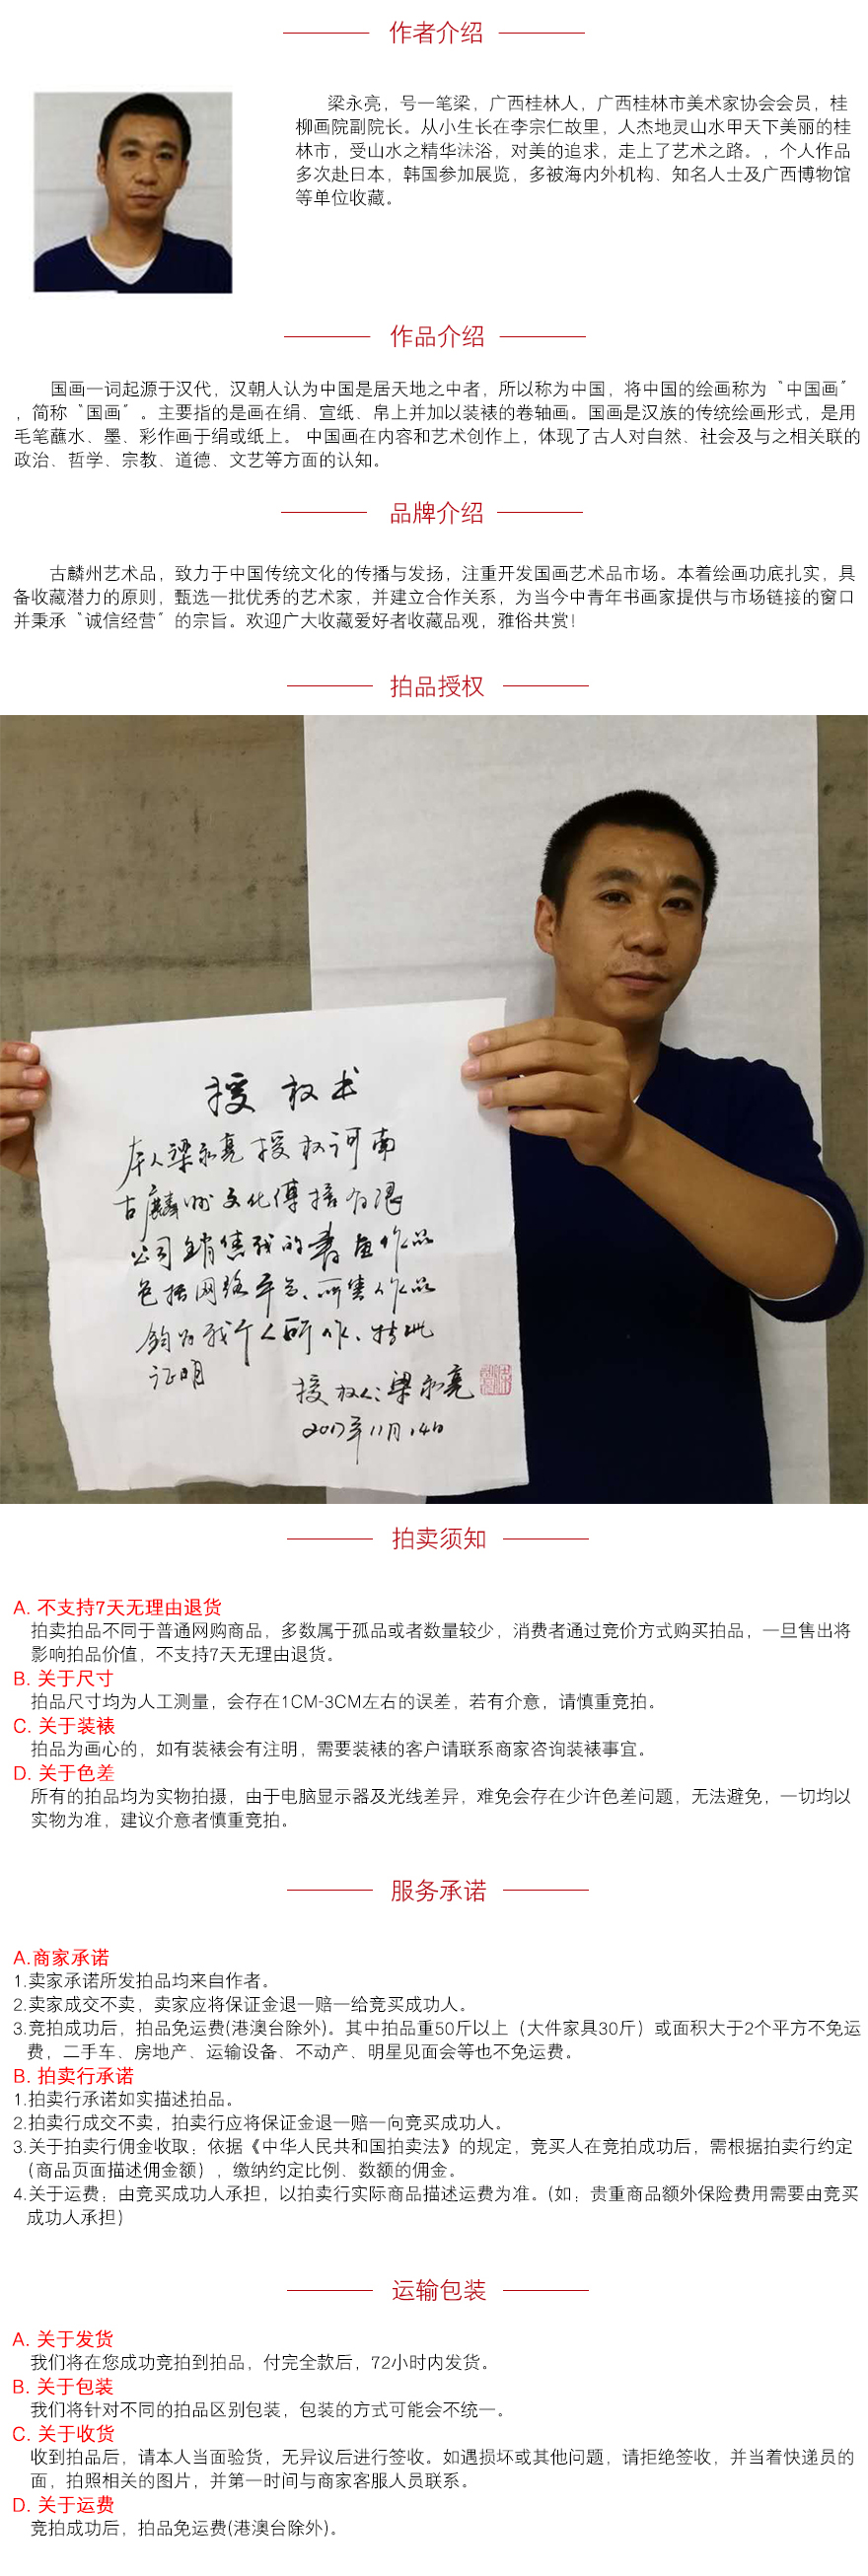 作者介绍
梁永亮，号一笔梁，广西桂林人，广西桂林市美术家协会会员，桂
柳画院副院长。从小生长在李宗仁故里，人杰地灵山水甲天下美丽的桂
林市，受山水之精华沫浴，对美的追求，走上了艺术之路。，个人作品
多次赴日本，韩国参加展览，多被海内外机构、知名人士及广西博物馆
等单位收藏。
作品介绍
国画一词起源于汉代，汉朝人认为中国是居天地之中者，所以称为中国，将中国的绘画称为〝中国画〞
，简称〝国画〞。主要指的是画在绢、宣纸、帛上并加以装裱的卷轴画。国画是汉族的传统绘画形式，是用
毛笔蘸水、墨、彩作画于绢或纸上。 中国画在内容和艺术创作上，体现了古人对自然、社会及与之相关联的
政治、哲学、宗教、道德、文艺等方面的认知。
品牌介绍
古麟州艺术品，致力于中国传统文化的传播与发扬，注重开发国画艺术品市场。本着绘画功底扎实，具
备收藏潜力的原则，甄选一批优秀的艺术家，并建立合作关系，为当今中青年书画家提供与市场链接的窗口
并秉承〝诚信经营〞的宗旨。欢迎广大收藏爱好者收藏品观，雅俗共赏！
拍品授权
授权书
本人梁永亮授权河南
古麟州文化传播有限
公司销售我的书画作品
包括网络平台、所售作品
均为我个人所作、特此
证明
授权人：梁永亮
2017年11月14日
拍卖须知
A. 不支持7天无理由退货
拍卖拍品不同于普通网购商品，多数属于孤品或者数量较少，消费者通过竞价方式购买拍品，一旦售出将
影响拍品价值，不支持7天无理由退货。
B. 关于尺寸
拍品尺寸均为人工测量，会存在1CM-3CM左右的误差，若有介意，请慎重竞拍。
C. 关于装裱
拍品为画心的，如有装裱会有注明，需要装裱的客户请联系商家咨询装裱事宜。
D. 关于色差
所有的拍品均为实物拍摄，由于电脑显示器及光线差异，难免会存在少许色差问题，无法避免，一切均以
实物为准，建议介意者慎重竞拍。
服务承诺
A.商家承诺
1.卖家承诺所发拍品均来自作者。
2.卖家成交不卖，卖家应将保证金退一赔一给竞买成功人。
3.竞拍成功后，拍品免运费(港澳台除外)。其中拍品重50斤以上（大件家具30斤）或面积大于2个平方不免运
费，二手车、房地产、运输设备、不动产、明星见面会等也不免运费。
B. 拍卖行承诺
1.拍卖行承诺如实描述拍品。
2.拍卖行成交不卖，拍卖行应将保证金退一赔一向竞买成功人。
3.关于拍卖行佣金收取：依据《中华人民共和国拍卖法》的规定，竞买人在竞拍成功后，需根据拍卖行约定
（商品页面描述佣金额），缴纳约定比例、数额的佣金。
4.关于运费：由竞买成功人承担，以拍卖行实际商品描述运费为准。(如：贵重商品额外保险费用需要由竞买
成功人承担)
运输包装
A. 关于发货
我们将在您成功竞拍到拍品，付完全款后，72小时内发货。
B. 关于包装
我们将针对不同的拍品区别包装，包装的方式可能会不统一。
C. 关于收货
收到拍品后，请本人当面验货，无异议后进行签收。如遇损坏或其他问题，请拒绝签收，并当着快递员的
面，拍照相关的图片，并第一时间与商家客服人员联系。
D. 关于运费
竞拍成功后，拍品免运费(港澳台除外)。